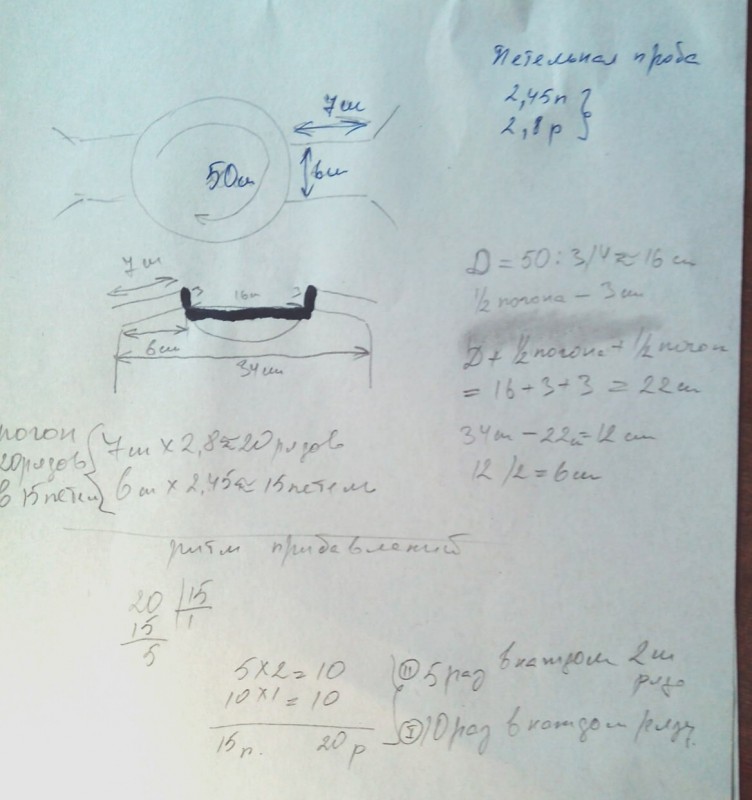 Петельная проба
2,45п
2,8р
7см
6см
50см
7см
3 16см 3
6см
34см
D = 50:3/4 ≈ 16 см
1/2 погона – 3см
D + 1/2 погона + 1/2 погон
= 16 + 3 + 3 = 22см
34см – 22см = 12 см
12 / 2 = 6см
погон
20рядов
в 15петел
7см × 2,8 ≈ 20 рядов
6 см × 2,45 ≈ 15 петель
ритм прибавлений
20 15
15 1
5
5×2 = 10
10×1 = 10
15п. 20р
II 5 раз в каждом 2м
ряде
I 10 раз в каждом ряду.